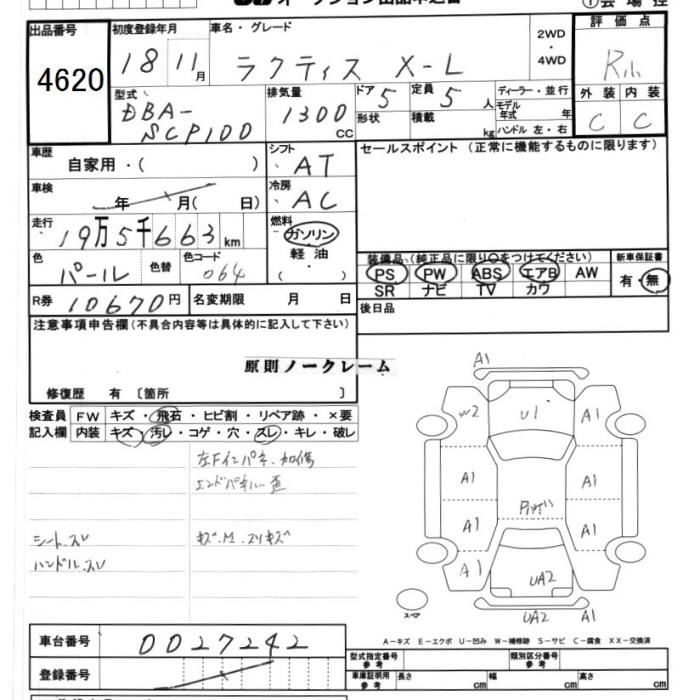 出品番号
4620
初度登録年月
18 11月
車名・グレード
ラクティス X-L
2WD
・
4WD
評価点
R小
外装 内装
C C
型式
DBA-
SCP100
排気量
1300
CC
ドア
5
定員
5
人
形状
積載
kg
ディーラー・並行
モデル
年式 年
ハンドル 左・右
車歴
自家用・( )
シフト
AT
セールスポイント (正常に機能するものに限ります)
車検
年 月( 日)
冷房
AC
走行
19万5千663km
燃料
ガソリン
軽油
・
( )
色
パール
色替
色コード
064
装備品(純正品に限り○をつけてください)
新車保証書
PS PW ABS エアB AW
SR ナビ TV カワ
有・無
R券
10670円
名変期限 月 日
後日品
注意事項申告欄(不具合内容等は具体的に記入して下さい)
原則ノークレーム
修復歴 有 〔箇所 〕
検査員
記入欄
FW キズ・飛石・ヒビ割・リペア跡・×要
内装 キズ・汚レ・コゲ・穴・スレ・キレ・破レ
エンドパネル 歪
シート.スレ
キズ.M.スリキズ
ハンドル.スレ
A1
W2
U1
A1
A1
A1
A1
A1
A1
UA2
UA2
A1
スペア
A-キズ E-エクボ U-凹み W-補修跡 S-サビ C-腐食 XX-交換済
車台番号
0027242
登録番号
型式指定番号
参考
類別区分番号
参考
車庫証明用
参考
長さ cm 幅 cm 高さ cm